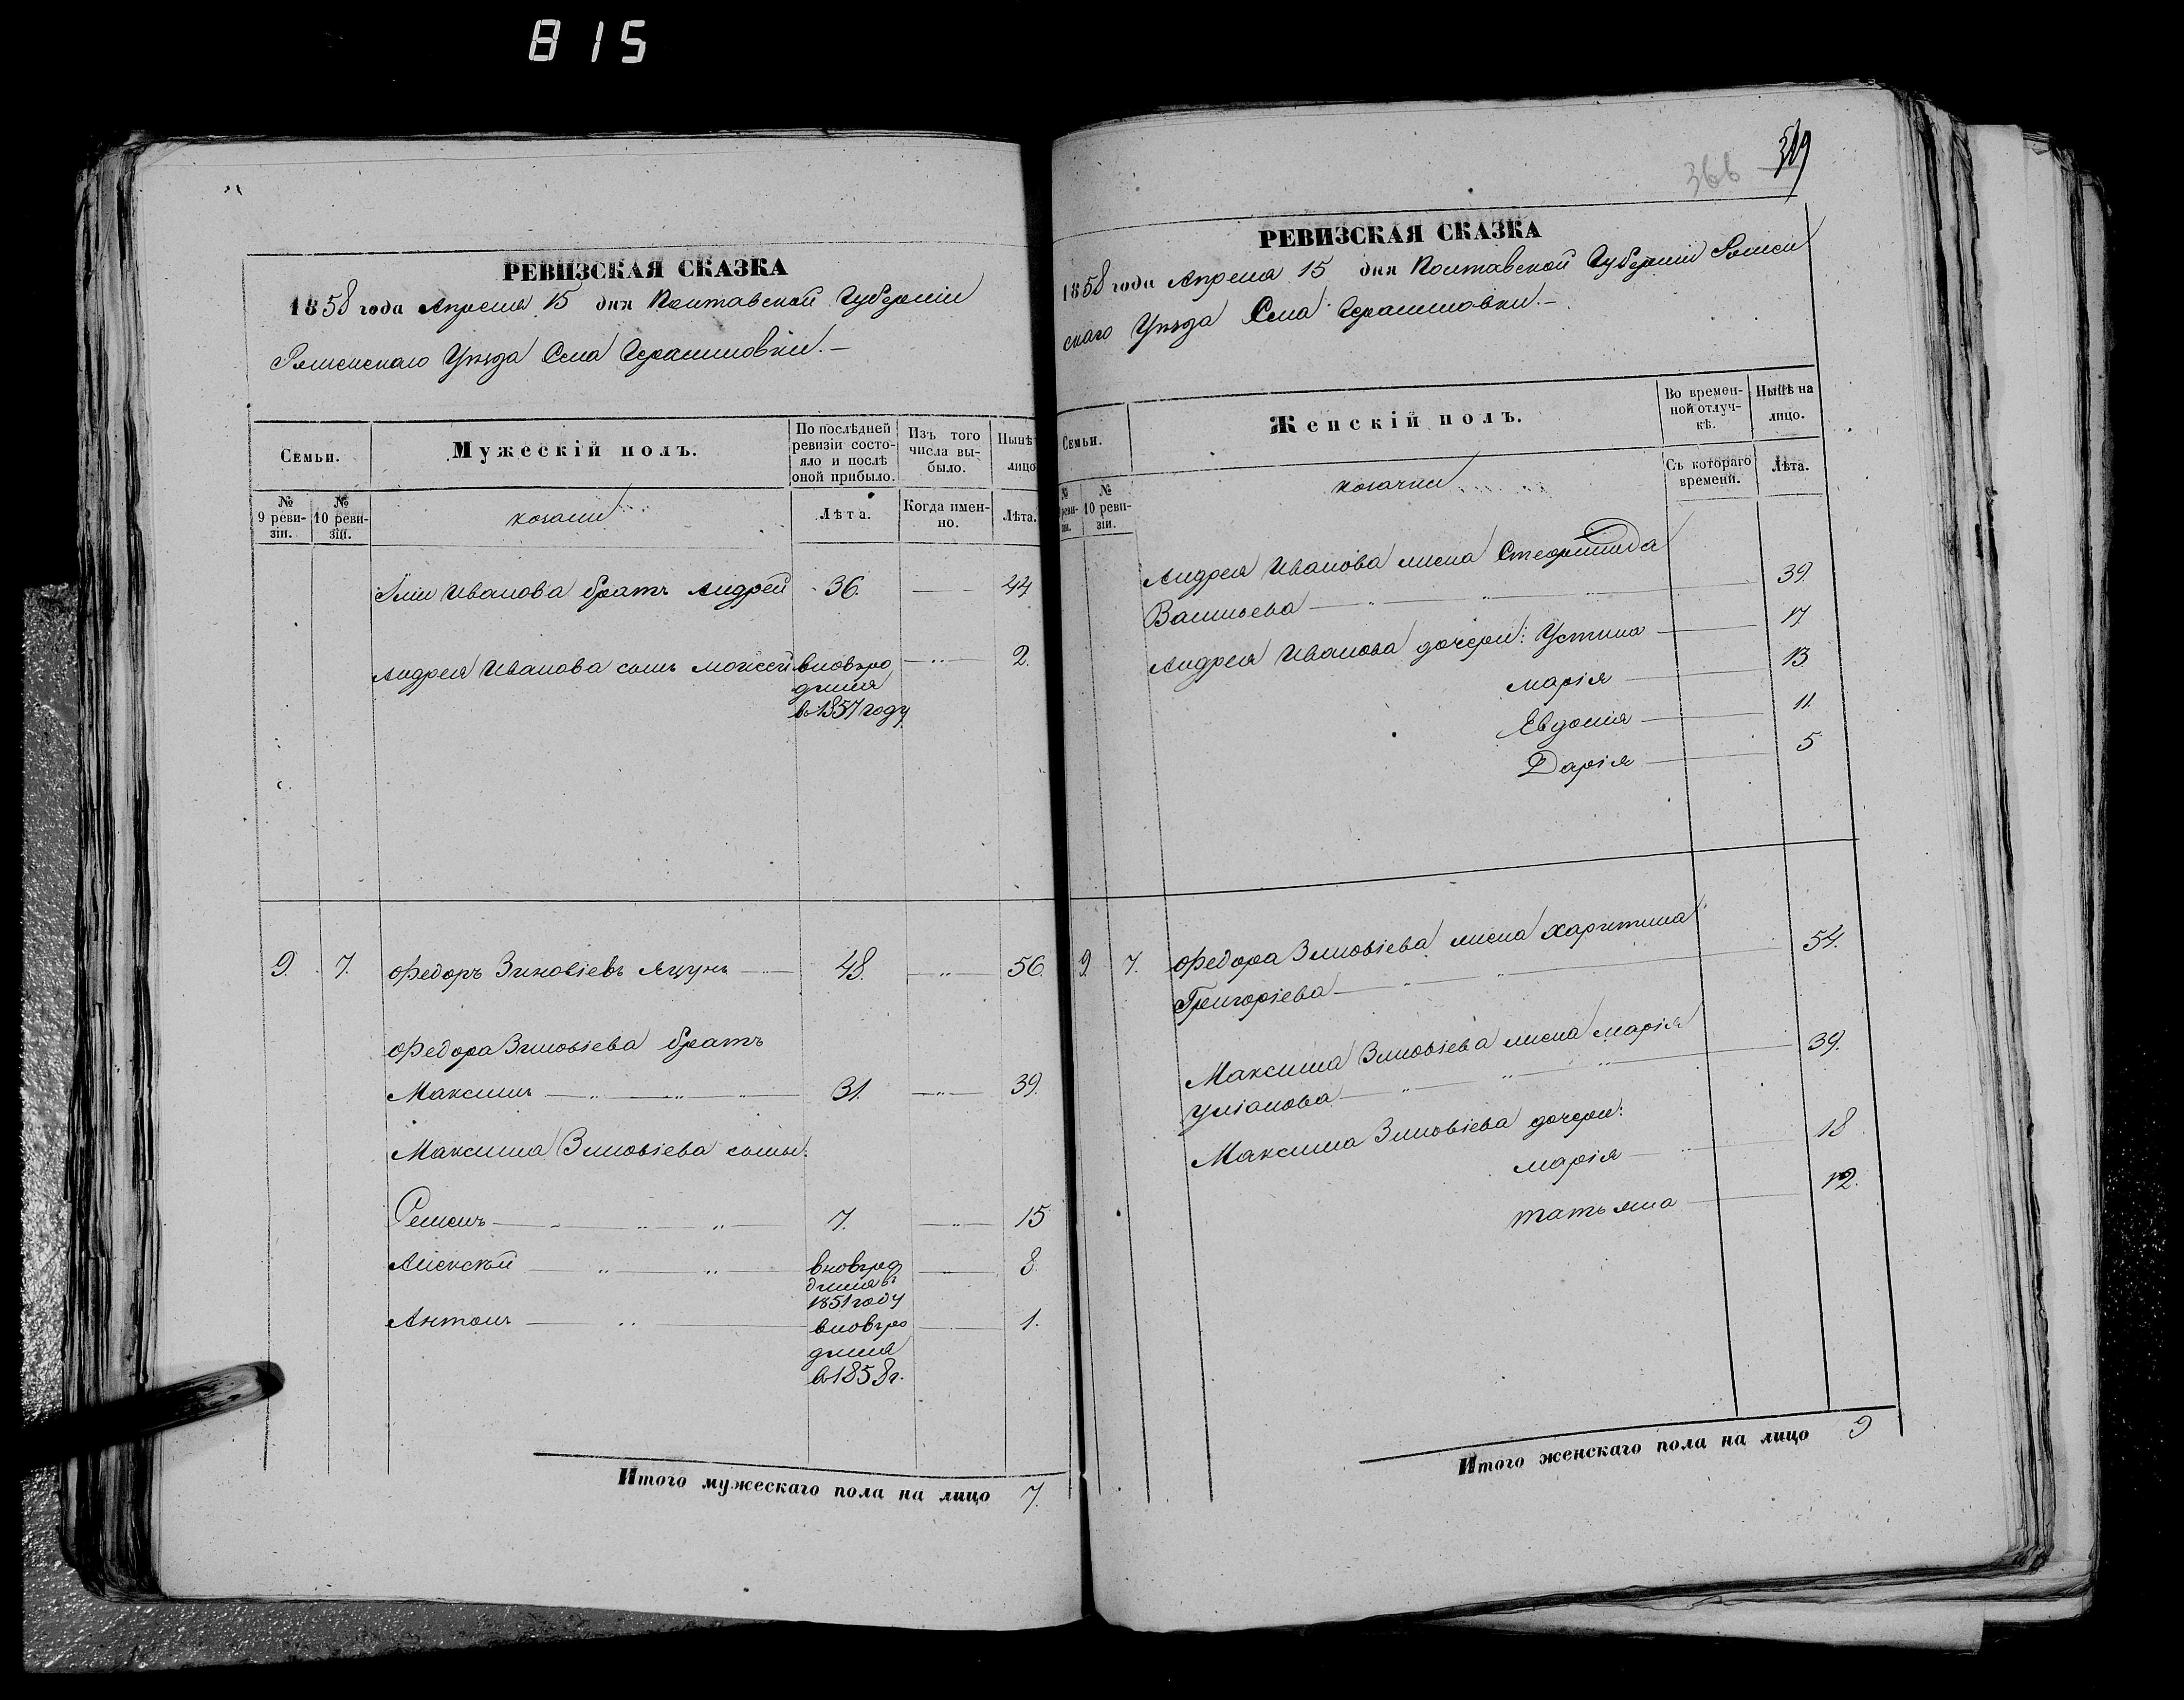 815
РЕВИЗСКАЯ СКАЗКА
1858 года Апреля 15 дня Полтавской Губерніи
Роменскаго Уѣзда Села Герасимовки.—
Семьи.
Мужескій полъ.
По послѣдней ревизіи состояло и послѣ оной прибыло.
Изъ того числа выбыло.
Нынѣ
лицо
№ 9 ревизіи.
№ 10 ревизіи.
козаки
Лѣта.
Когда именно.
Лѣта.
Иванова братъ Андрей 36. 44
Андрея Иванова сынъ Моисей вновьро 2.
дился
в 1857 году
9. 7. Федоръ Зиновіевъ Яцунъ 48. 56.
Федора Зиновіева братъ
Максимъ 31. 39.
Максима Зиновіева сыны:
Семенъ 7. 15
Алексѣй вновьрод 8.
дился въ
1851 году
Антонъ вновьро 1.
дился
в 1858 г.
Итого мужескаго пола на лицо 7.
366 319
РЕВИЗСКАЯ СКАЗКА
1858 года Апреля 15 дня Полтавской Губерніи Ромен
скаго Уѣзда Села Герасимовки.—
Семьи.
Женскій полъ.
Во временной отлучкѣ.
Нынѣ на лицо.
№ 10 ревизіи.
козачки
Съ котораго времени.
Лѣта.
Андрея Иванова жена Стефанида
Васильева 39.
Андрея Иванова дочери: Устина 17.
Марія 13
Евдокія 11.
Дарія 5
9. 7. Федора Зиновіева жена Харитина
Григоріева 54.
Максима Зиновіева жена Марія
Уліанова 39.
Максима Зиновіева дочери:
Марія 18
Татьяна 12.
Итого женскаго пола на лицо 9